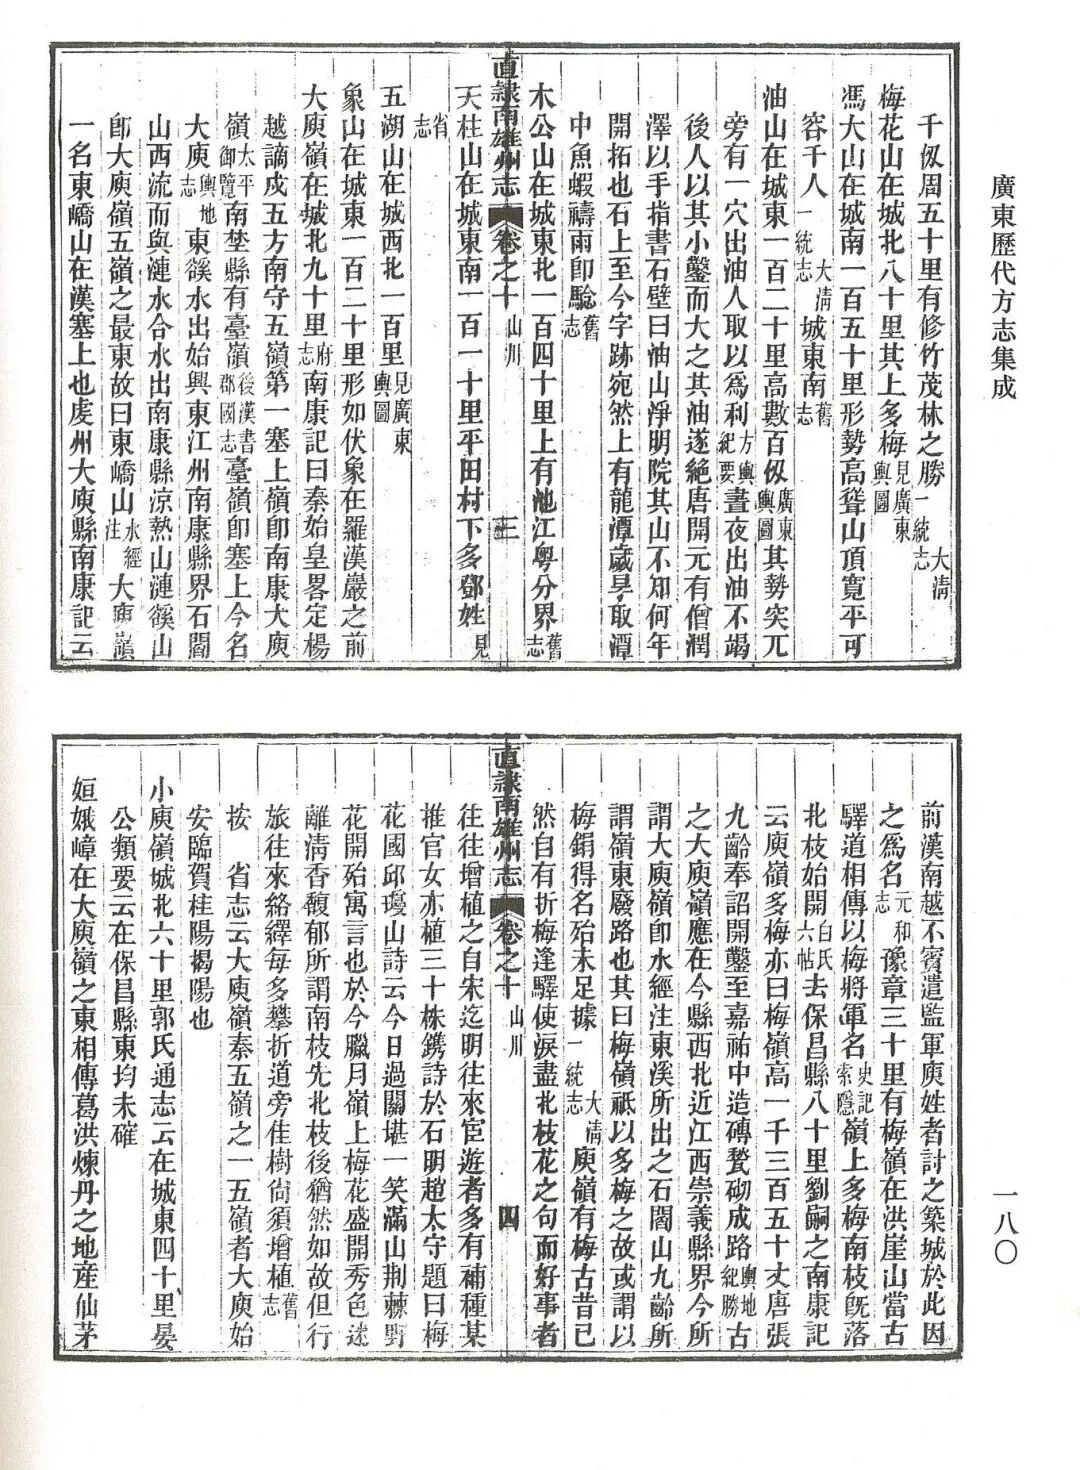 廣東歷代方志集成
千仭周五十里有修竹茂林之勝大淸一統志
梅花山在城北八十里其上多梅見廣東輿圖
馮大山在城南一百五十里形勢高聳山頂寬平可
容千人大淸一統志城東南舊志
油山在城東一百二十里高數百仭廣東輿圖其勢突兀
旁有一穴出油人取以爲利方輿紀要晝夜出油不竭
後人以其小鑿而大之其油遂絕唐開元有僧潤
澤以手指書石壁曰油山淨明院其山不知何年
開拓也石上至今字跡宛然上有龍潭歲旱取潭
中魚蝦禱雨卽驗舊志
木公山在城東北一百四十里上有池江粤分界舊志
直隷南雄州志 卷之十 山川 三
天柱山在城東南一百一十里平田村下多鄧姓見
省志
五湖山在城西北一百里見廣東輿圖
象山在城東一百二十里形如伏象在羅漢巖之前
大庾嶺在城北九十里府志南康記曰秦始皇畧定楊
越謫戍五方南守五嶺第一塞上嶺卽南康大庾
嶺太平御覽南埜縣有臺嶺後漢書郡國志臺嶺卽塞上今名
大庾輿地志東豀水出始興東江州南康縣界石閻
山西流而與漣水合水出南康縣涼熱山漣豀山
卽大庾嶺五嶺之最東故曰東嶠山水經注大庾嶺
一名東嶠山在漢塞上也虔州大庾縣南康記云
前漢南越不賓遣監軍庾姓者討之築城於此因
之爲名元和志豫章三十里有梅嶺在洪崖山當古
驛道相傳以梅將軍名史記索隱嶺上多梅南枝旣落
北枝始開白氏六帖去保昌縣八十里劉嗣之南康記
云庾嶺多梅亦曰梅嶺高一千三百五十丈唐張
九齡奉詔開鑿至嘉祐中造磚甃砌成路輿地紀勝古
之大庾嶺應在今縣西北近江西崇義縣界今所
謂大庾嶺卽水經注東溪所出之石閻山九齡所
謂嶺東廢路也其曰梅嶺祇以多梅之故或謂以
梅鋗得名殆未足據大淸一統志庾嶺有梅古昔已
然自有折梅逢驛使淚盡北枝花之句而好事者
直隷南雄州志 卷之十 山川 四
往往增植之自宋迄明往來宦遊者多有補種某
推官女亦植三十株鐫詩於石明趙太守題曰梅
花國邱瓊山詩云今日過關堪一笑滿山荆棘野
花開殆寓言也於今臘月嶺上梅花盛開秀色迷
離淸香馥郁所謂南枝先北枝後猶然如故但行
旅往來絡繹每多攀折道旁佳樹尙須增植舊志
按 省志云大庾嶺秦五嶺之一五嶺者大庾始
安臨賀桂陽揭陽也
小庾嶺城北六十里郭氏通志云在城東四十里晏
公類要云在保昌縣東均未確
姮娥嶂在大庾嶺之東相傳葛洪煉丹之地產仙茅
一八〇